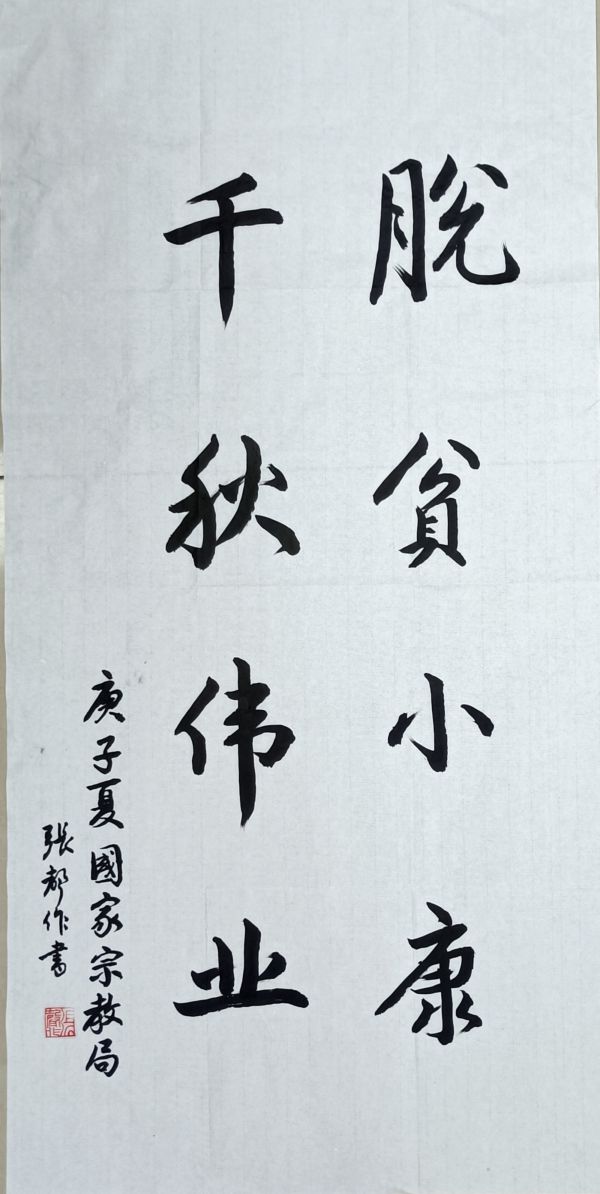 脱贫小康
千秋伟业
庚子夏國家宗教局
張都作書